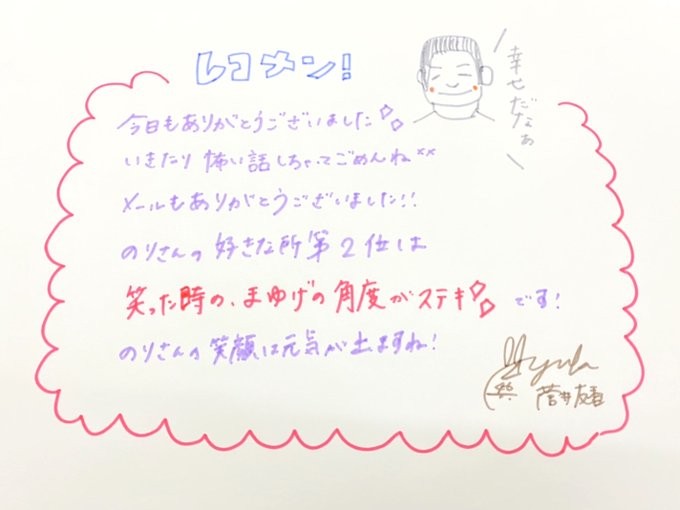 レコメン!
幸せだなぁ
今日もありがとうございました
いきなり怖い話しちゃってごめんね××
メールもありがとうございました!!
のりさんの好きな所第2位は
笑った時の、まゆげの角度がステキです!
のりさんの笑顔は元気が出ますね!
Yuuka
菅井友香